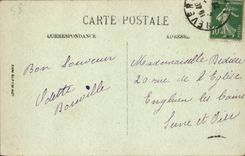 CARTE POSTALE
CORRESPONDANCE
ADRESSE
NEVERS
10
Bon Souvenir
Odette
Mademoiselle
20 rue de l'Eglise
Enghien les Bains
Seine et Oise